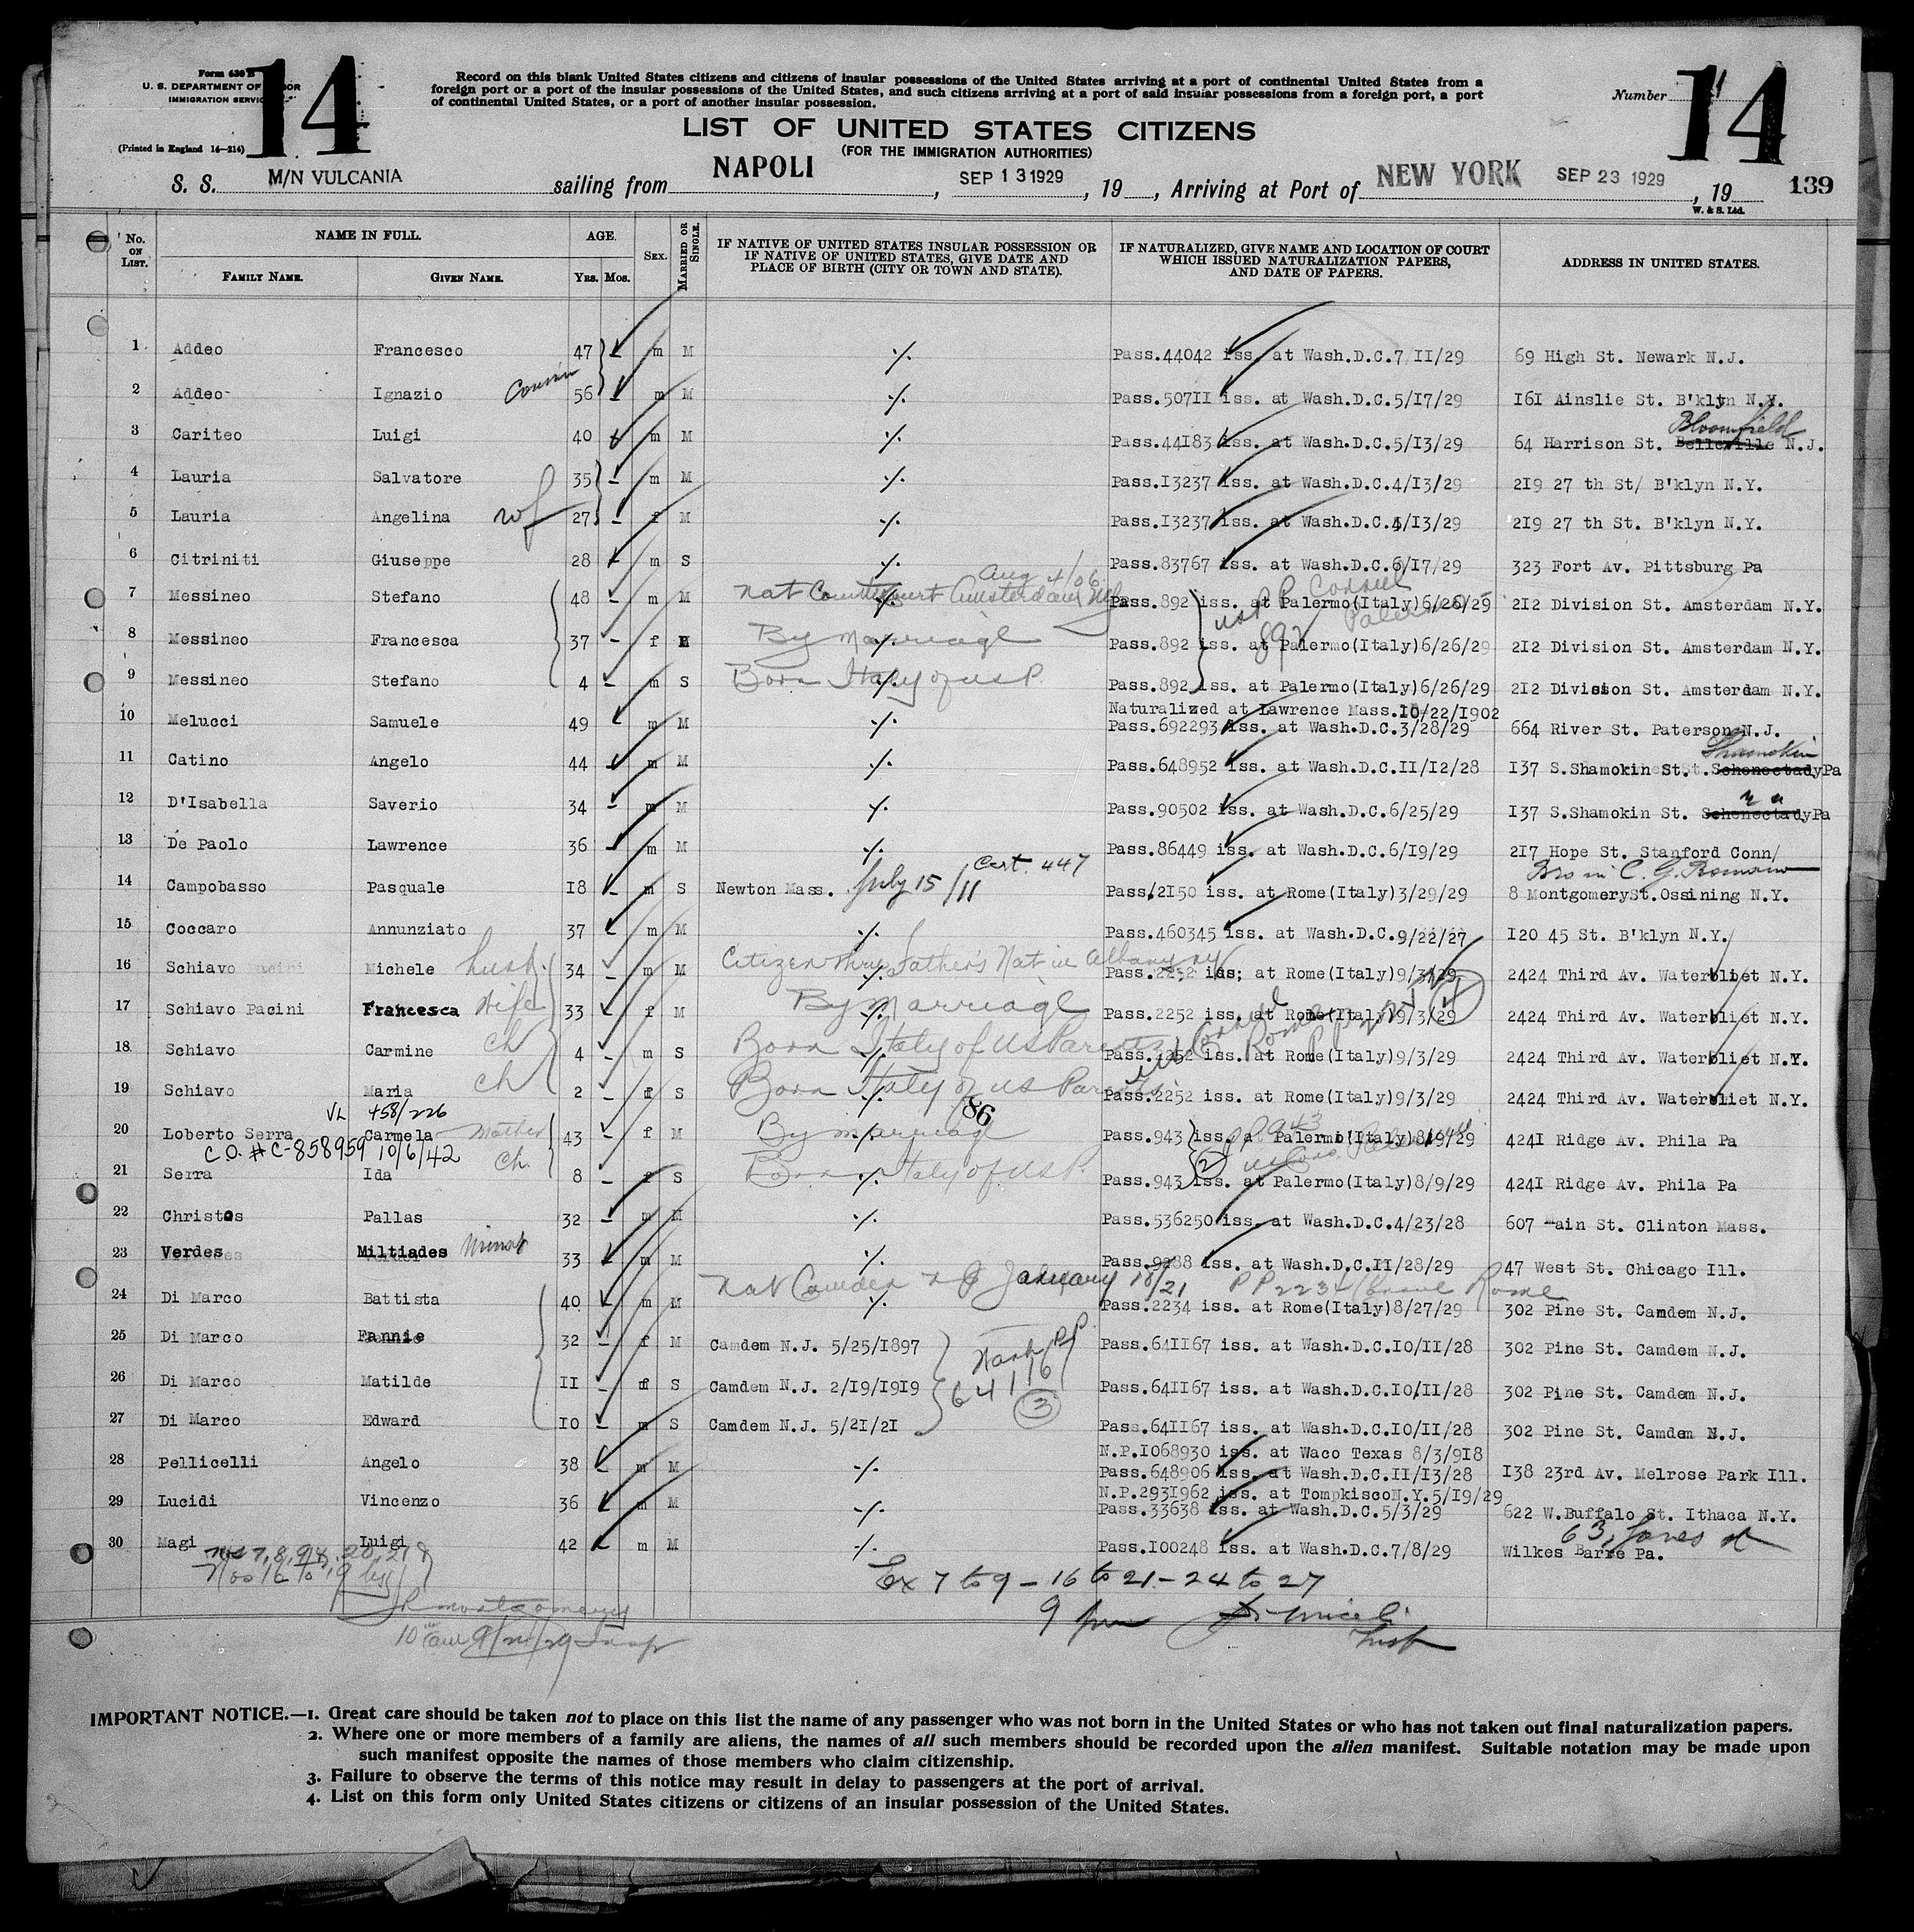 14
Form 630 B
U. S. DEPARTMENT OF LABOR
IMMIGRATION SERVICE
(Printed in England 14—214)
Record on this blank United States citizens and citizens of insular possessions of the United States arriving at a port of continental United States from a
foreign port or a port of the insular possessions of the United States, and such citizens arriving at a port of said insular possessions from a foreign port, a port
of continental United States, or a port of another insular possession.
Number 14
LIST OF UNITED STATES CITIZENS
(FOR THE IMMIGRATION AUTHORITIES)
S. S. M/N VULCANIA sailing from NAPOLI, SEP 13 1929, 19 , Arriving at Port of NEW YORK SEP 23 1929, 19 139
W. & S. Ltd.
No. ON LIST. NAME IN FULL. FAMILY NAME. GIVEN NAME. AGE. YRS. MOS. SEX. MARRIED OR SINGLE. IF NATIVE OF UNITED STATES INSULAR POSSESSION OR IF NATIVE OF UNITED STATES, GIVE DATE AND PLACE OF BIRTH (CITY OR TOWN AND STATE). IF NATURALIZED, GIVE NAME AND LOCATION OF COURT WHICH ISSUED NATURALIZATION PAPERS, AND DATE OF PAPERS. ADDRESS IN UNITED STATES.
1 Addeo Francesco 47 - m M ./. Pass.44042 iss. at Wash.D.C.7 II/29 69 High St. Newark N.J.
2 Addeo Ignazio Cousin 56 - m M ./. Pass.507II iss. at Wash.D.C.5/I7/29 I6I Ainslie St. B'klyn N.Y.
Bloomfield
3 Cariteo Luigi 40 - m M ./. Pass.44I83 iss. at Wash.D.C.5/I3/29 64 Harrison St. Belleville N.J.
4 Lauria Salvatore 35 - m M ./. Pass.I3237 iss. at Wash.D.C.4/I3/29 2I9 27 th St/ B'klyn N.Y.
5 Lauria Angelina wf 27 - f M ./. Pass.I3237 iss. at Wash.D.C.4/I3/29 2I9 27 th St. B'klyn N.Y.
6 Citriniti Giuseppe 28 - m S ./. Pass.83767 iss. at Wash.D.C.6/I7/29 323 Fort Av. Pittsburg Pa
Aug 4/06
7 Messineo Stefano 48 - m M Nat County Court Amsterdam NY ./. Pass.892 iss. at Palermo(Italy)6/26/29 2I2 Division St. Amsterdam N.Y.
US PP Consul Palermo 892
8 Messineo Francesca 37 - f M By Marriage ./. Pass.892 iss. at Palermo(Italy)6/26/29 2I2 Division St. Amsterdam N.Y.
9 Messineo Stefano 4 - m S Born Italy of US P. ./. Pass.892 iss. at Palermo(Italy)6/26/29 2I2 Division St. Amsterdam N.Y.
Naturalized at Lawrence Mass.I0/22/I902
10 Melucci Samuele 49 - m M ./. Pass.692293 iss. at Wash.D.C.3/28/29 664 River St. Paterson N.J.
Shamokin
11 Catino Angelo 44 - m M ./. Pass.648952 iss. at Wash.D.C.II/I2/28 I37 S.Shamokin St. SchenectadyPa
12 D'Isabella Saverio 34 - m M ./. Pass.90502 iss. at Wash.D.C.6/25/29 I37 S.Shamokin St. SchenectadyPa
13 De Paolo Lawrence 36 - m M ./. Pass.86449 iss. at Wash.D.C.6/I9/29 2I7 Hope St. Stanford Conn/
Cert. 447
14 Campobasso Pasquale I8 - m S Newton Mass. July 15/11 Pass/2I50 iss. at Rome(Italy)3/29/29 8 MontgomerySt.Ossining N.Y.
15 Coccaro Annunziato 37 - m M ./. Pass.460345 iss. at Wash.D.C.9/22/27 I20 45 St. B'klyn N.Y.
16 Schiavo Michele husb. 34 - m M Citizen thru Father's Nat in Albany NY ./. Pass.2252 iss; at Rome(Italy)9/3/29 2424 Third Av. Watervliet N.Y.
17 Schiavo Pacini Francesca Wife 33 - f M By Marriage ./. Pass.2252 iss. at Rome(Italy)9/3/29 2424 Third Av. Watervliet N.Y.
18 Schiavo Carmine ch 4 - m S Born Italy of US Parents ./. Pass.2252 iss. at Rome(Italy)9/3/29 2424 Third Av. Watervliet N.Y.
19 Schiavo Maria ch 2 - f S Born Italy of US Parents ./. Pass.2252 iss. at Rome(Italy)9/3/29 2424 Third Av. Watervliet N.Y.
VL 458/226 86
20 Loberto Serra Carmela Mother 43 - f M By marriage ./. Pass.943 iss. at Palermo(Italy)8/9/29 424I Ridge Av. Phila Pa
C.O. # C-858959 10/6/42
21 Serra Ida ch. 8 - f S Born Italy of US P. ./. Pass.943 iss. at Palermo(Italy)8/9/29 424I Ridge Av. Phila Pa
22 Christos Pallas 32 - m M ./. Pass.536250 iss. at Wash.D.C.4/23/28 607 Main St. Clinton Mass.
23 Verdes Miltiades 33 - m M ./. Pass.9288 iss. at Wash.D.C.II/28/29 47 West St. Chicago Ill.
Nat Camden N J January 18/21 PP 2234 Consul Rome
24 Di Marco Battista 40 - m M ./. Pass.2234 iss. at Rome(Italy)8/27/29 302 Pine St. Camdem N.J.
25 Di Marco Fannie 32 - f M Camdem N.J. 5/25/I897 Pass.64II67 iss. at Wash.D.C.IO/II/28 302 Pine St. Camdem N.J.
Wash PP 641167 (3)
26 Di Marco Matilde II - f S Camdem N.J. 2/I9/I9I9 Pass.64II67 iss. at Wash.D.C.IO/II/28 302 Pine St. Camdem N.J.
27 Di Marco Edward IO - m S Camdem N.J. 5/2I/2I Pass.64II67 iss. at Wash.D.C.IO/II/28 302 Pine St. Camdem N.J.
N.P.I068930 iss. at Waco Texas 8/3/9I8
28 Pellicelli Angelo 38 - m M ./. Pass.648906 iss. at Wash.D.C.II/I3/28 I38 23rd Av. Melrose Park Ill.
N.P.293I962 iss. at TompkiscoN.Y.5/I9/29
29 Lucidi Vincenzo 36 - m M ./. Pass.33638 iss. at Wash.D.C.5/3/29 622 W.Buffalo St. Ithaca N.Y.
63 Jones st
30 Magi Luigi 42 - m M ./. Pass.I00248 iss. at Wash.D.C.7/8/29 Wilkes Barre Pa.
Ex 7 to 9 - 16 to 21 - 24 to 27
9 pm
IMPORTANT NOTICE.—1. Great care should be taken not to place on this list the name of any passenger who was not born in the United States or who has not taken out final naturalization papers.
2. Where one or more members of a family are aliens, the names of all such members should be recorded upon the alien manifest. Suitable notation may be made upon
such manifest opposite the names of those members who claim citizenship.
3. Failure to observe the terms of this notice may result in delay to passengers at the port of arrival.
4. List on this form only United States citizens or citizens of an insular possession of the United States.